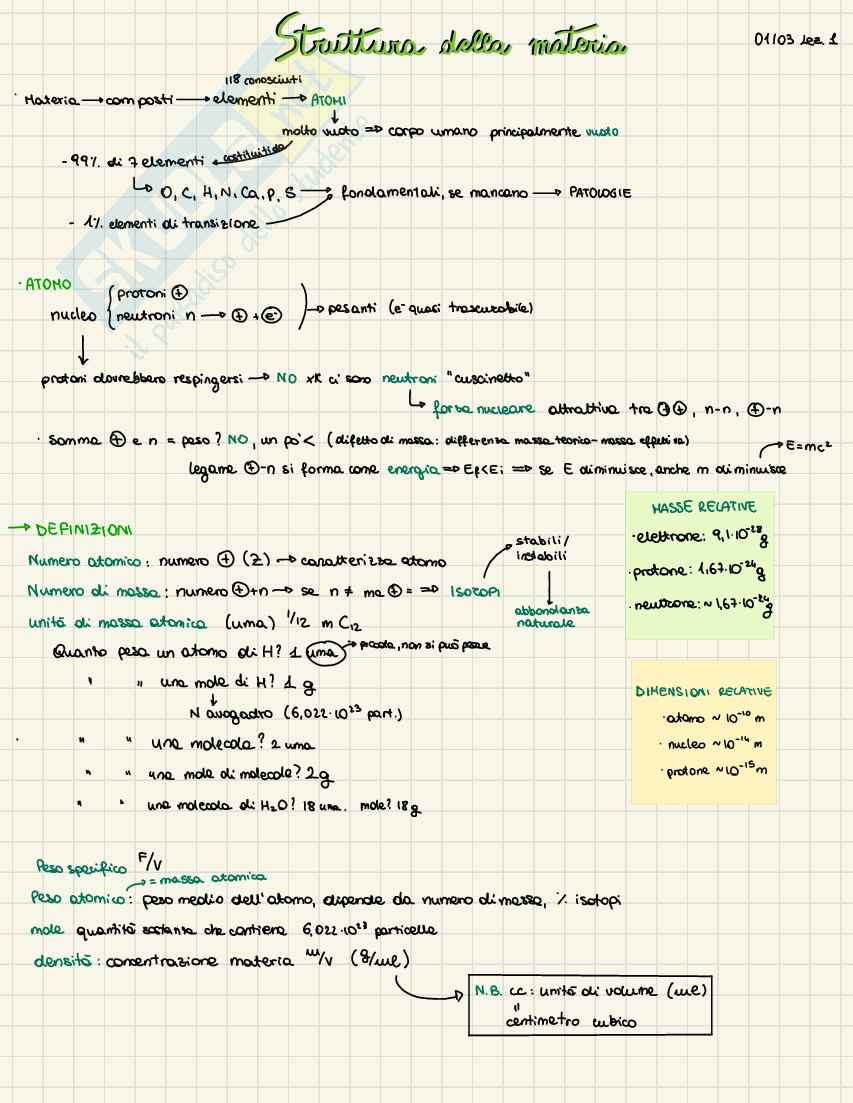 Struttura della materia
01/03 Lez. 1
118 conosciuti
· Materia → composti → elementi → ATOMI
molto vuoto ⇒ corpo umano principalmente vuoto
- 99% di 7 elementi ← costituito da
↳ O, C, H, N, Ca, P, S → fondamentali, se mancano → PATOLOGIE
- 1% elementi di transizione
SKUOLA.net
il paradiso dello studente
· ATOMO
nucleo { protoni ⊕
neutroni n → ⊕ + e⁻ ) → pesanti (e⁻ quasi trascurabile)
protoni dovrebbero respingersi → NO xK ci sono neutroni "cuscinetto"
↳ forza nucleare attrattiva tra ⊕⊕, n-n, ⊕-n
· Somma ⊕ e n = peso? NO, un po' < (difetto di massa: differenza massa teorica-massa effettiva)
→ E=mc²
legame ⊕-n si forma come energia ⇒ Ef<Ei ⇒ se E diminuisce, anche m diminuisce
→ DEFINIZIONI
Numero atomico: numero ⊕ (Z) → caratterizza atomo
Numero di massa: numero ⊕+n → se n ≠ ma ⊕ = ⇒ ISOTOPI
stabili/
instabili
abbondanza
naturale
unità di massa atomica (uma) 1/12 m C₁₂
Quanto pesa un atomo di H? 1 uma → piccola, non si può pesare
" " una mole di H? 1 g
N avogadro (6,022·10²³ part.)
· " " una molecola? 2 uma
" " una mole di molecole? 2g
" " una molecola di H₂O? 18 uma. mole? 18g
MASSE RELATIVE
· elettrone: 9,1·10⁻²⁸g
· protone: 1,67·10⁻²⁴g
· neutrone: ~1,67·10⁻²⁴g
DIMENSIONI RELATIVE
· atomo ~ 10⁻¹⁰ m
· nucleo ~ 10⁻¹⁴ m
· protone ~10⁻¹⁵ m
Peso specifico F/V
= massa atomica
Peso atomico: peso medio dell'atomo, dipende da numero di massa, % isotopi
mole quantità sostanza che contiene 6,022·10²³ particelle
densità: concentrazione materia m/V (g/ml)
N.B. cc: unità di volume (ml)
"
centimetro cubico